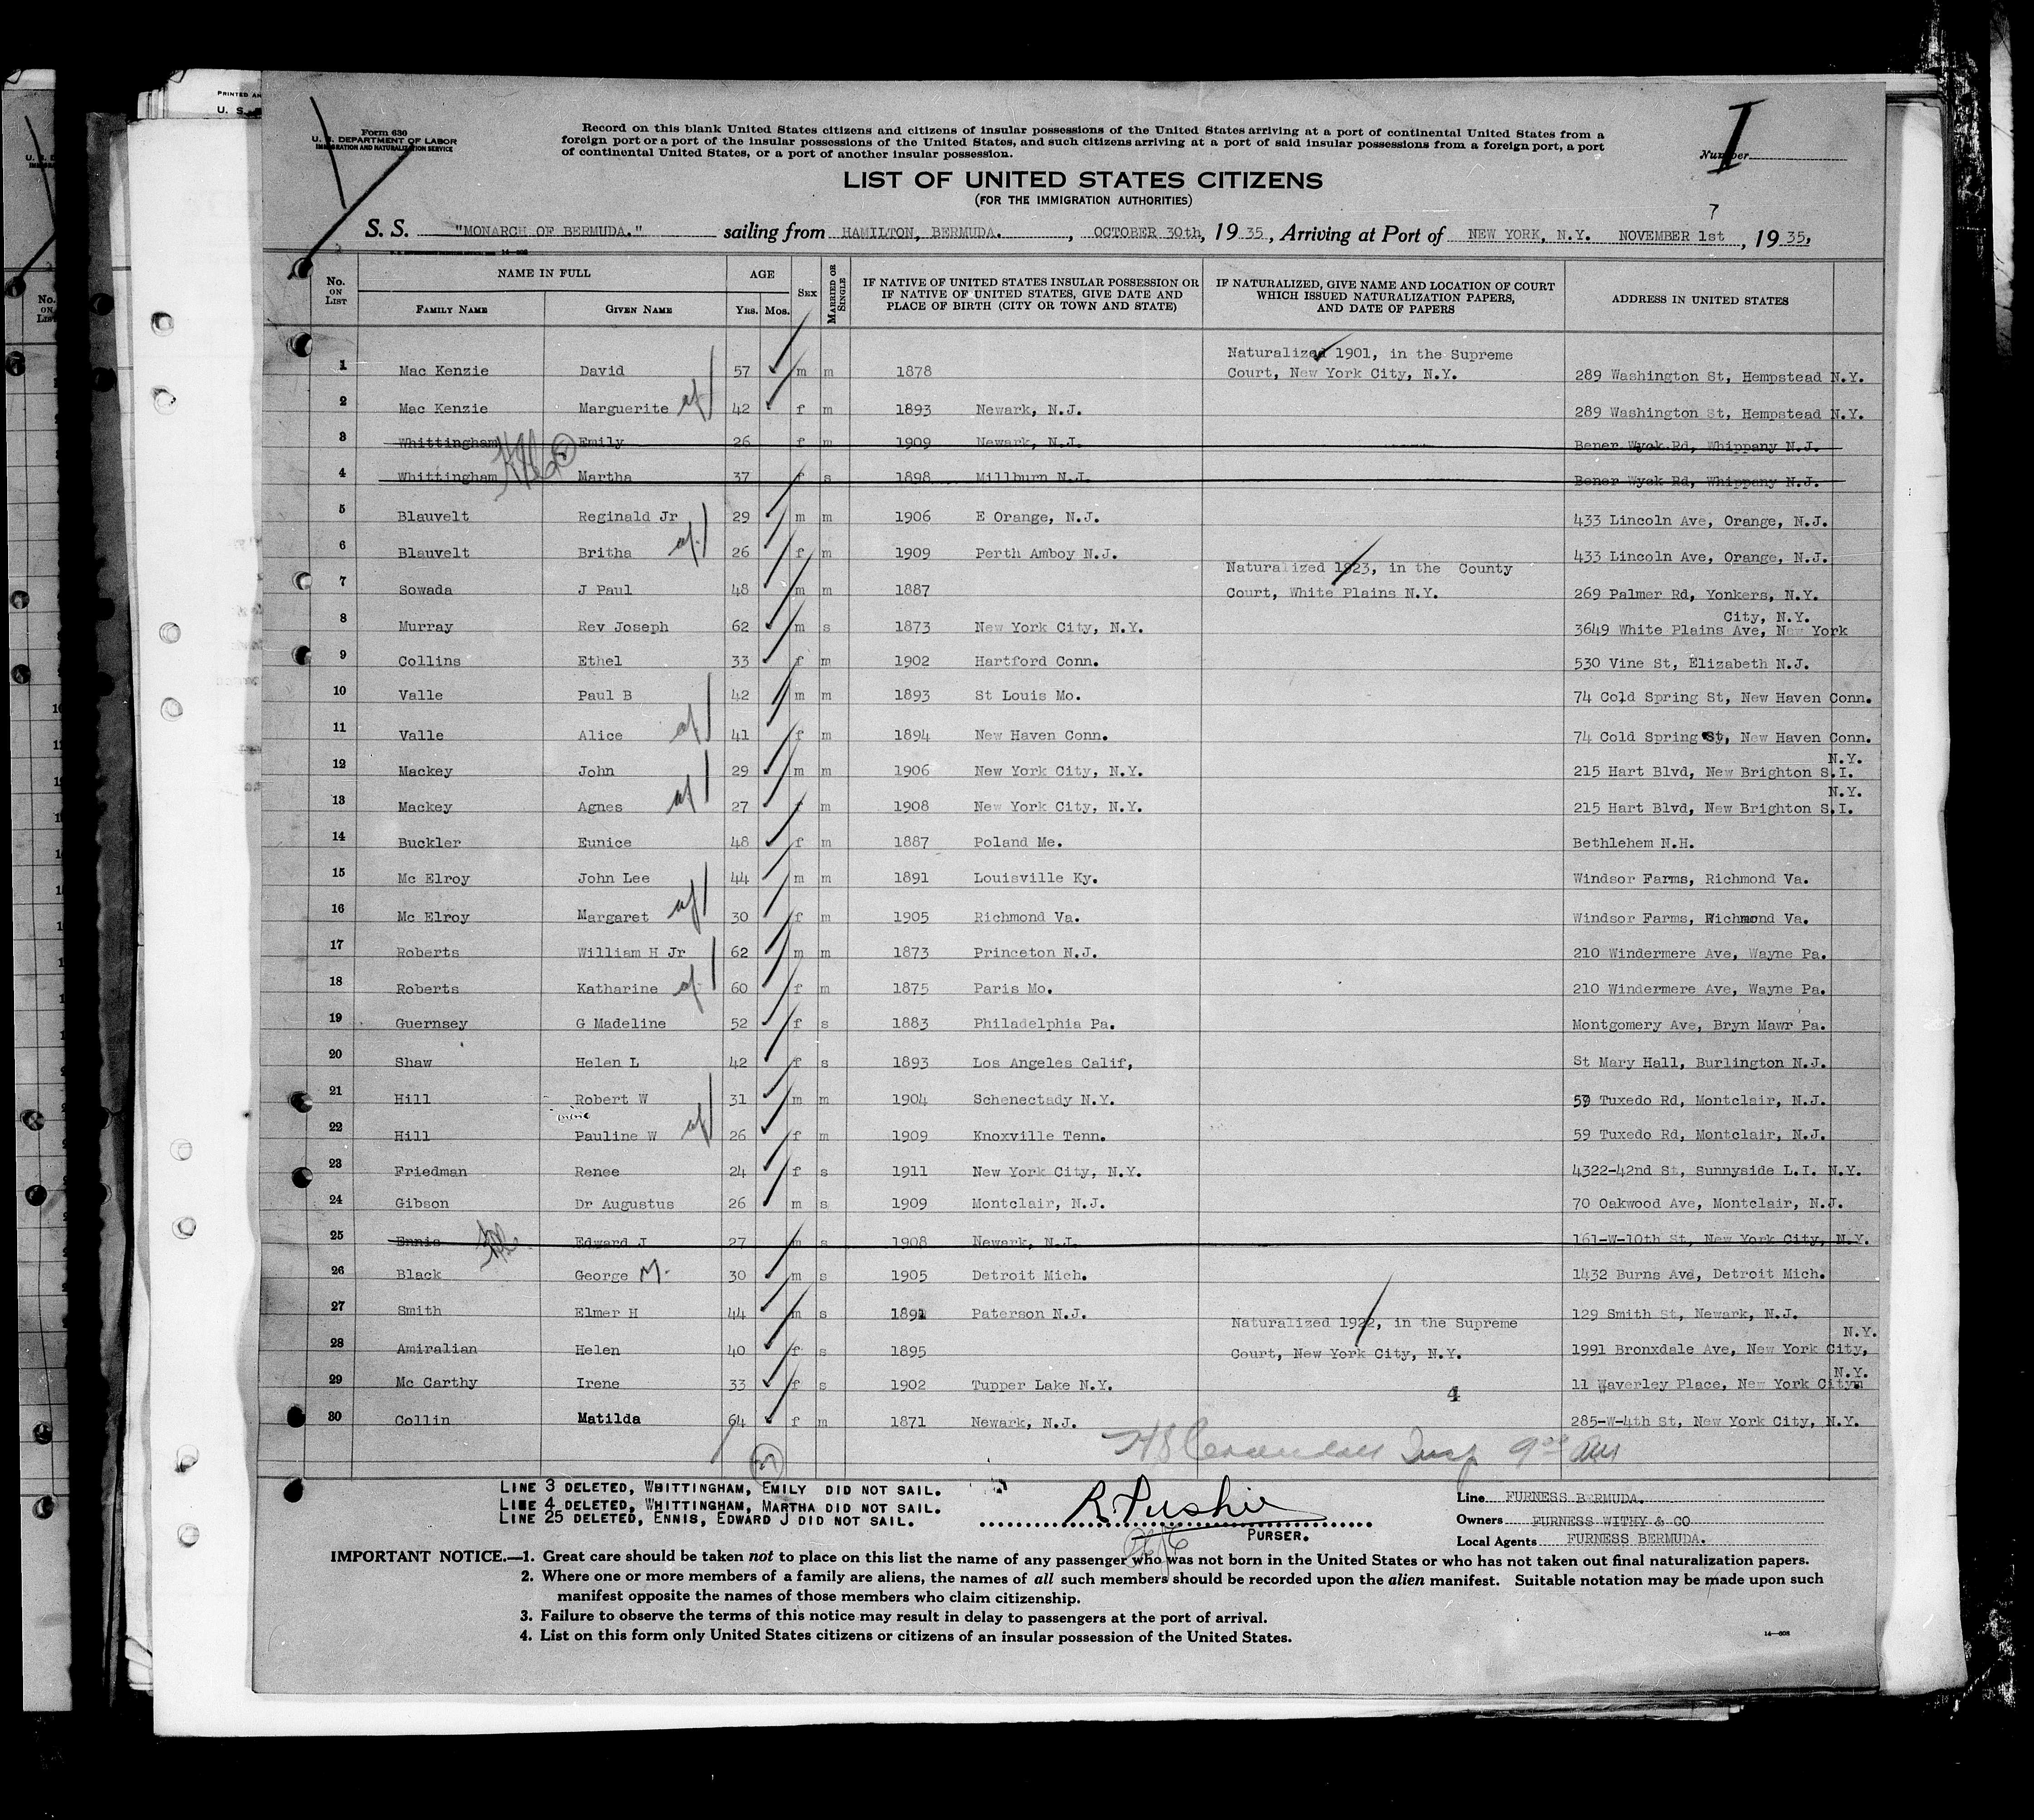 PRINTED AN
U. S.
Form 630
U. S. DEPARTMENT OF LABOR
IMMIGRATION AND NATURALIZATION SERVICE
Record on this blank United States citizens and citizens of insular possessions of the United States arriving at a port of continental United States from a
foreign port or a port of the insular possessions of the United States, and such citizens arriving at a port of said insular possessions from a foreign port, a port
of continental United States, or a port of another insular possession.
Number
LIST OF UNITED STATES CITIZENS
(FOR THE IMMIGRATION AUTHORITIES)
S. S. "MONARCH OF BERMUDA." sailing from HAMILTON, BERMUDA. , OCTOBER 30th, 19 35, Arriving at Port of NEW YORK, N.Y. NOVEMBER 1st, 19 35,
No. ON LIST NAME IN FULL AGE SEX MARRIED OR SINGLE IF NATIVE OF UNITED STATES INSULAR POSSESSION OR IF NATIVE OF UNITED STATES, GIVE DATE AND PLACE OF BIRTH (CITY OR TOWN AND STATE) IF NATURALIZED, GIVE NAME AND LOCATION OF COURT WHICH ISSUED NATURALIZATION PAPERS, AND DATE OF PAPERS ADDRESS IN UNITED STATES
FAMILY NAME GIVEN NAME YRS. MOS.
1 Mac Kenzie David 57 m m 1878 Naturalized 1901, in the Supreme Court, New York City, N.Y. 289 Washington St, Hempstead N.Y.
2 Mac Kenzie Marguerite 42 f m 1893 Newark, N.J. 289 Washington St, Hempstead N.Y.
3 Whittingham Emily 26 f m 1909 Newark, N.J. Bener Wyck Rd, Whippany N.J.
4 Whittingham Martha 37 f s 1898 Millburn N.J. Bener Wyck Rd, Whippany N.J.
5 Blauvelt Reginald Jr 29 m m 1906 E Orange, N.J. 433 Lincoln Ave, Orange, N.J.
6 Blauvelt Britha 26 f m 1909 Perth Amboy N.J. 433 Lincoln Ave, Orange, N.J.
7 Sowada J Paul 48 m m 1887 Naturalized 1923, in the County Court, White Plains N.Y. 269 Palmer Rd, Yonkers, N.Y.
8 Murray Rev Joseph 62 m s 1873 New York City, N.Y. 3649 White Plains Ave, New York City, N.Y.
9 Collins Ethel 33 f m 1902 Hartford Conn. 530 Vine St, Elizabeth N.J.
10 Valle Paul B 42 m m 1893 St Louis Mo. 74 Cold Spring St, New Haven Conn.
11 Valle Alice 41 f m 1894 New Haven Conn. 74 Cold Spring St, New Haven Conn.
12 Mackey John 29 m m 1906 New York City, N.Y. 215 Hart Blvd, New Brighton S.I. N.Y.
13 Mackey Agnes 27 f m 1908 New York City, N.Y. 215 Hart Blvd, New Brighton S.I. N.Y.
14 Buckler Eunice 48 f m 1887 Poland Me. Bethlehem N.H.
15 Mc Elroy John Lee 44 m m 1891 Louisville Ky. Windsor Farms, Richmond Va.
16 Mc Elroy Margaret 30 f m 1905 Richmond Va. Windsor Farms, Richmond Va.
17 Roberts William H Jr 62 m m 1873 Princeton N.J. 210 Windermere Ave, Wayne Pa.
18 Roberts Katharine 60 f m 1875 Paris Mo. 210 Windermere Ave, Wayne Pa.
19 Guernsey G Madeline 52 f s 1883 Philadelphia Pa. Montgomery Ave, Bryn Mawr Pa.
20 Shaw Helen L 42 f s 1893 Los Angeles Calif, St Mary Hall, Burlington N.J.
21 Hill Robert W 31 m m 1904 Schenectady N.Y. 59 Tuxedo Rd, Montclair, N.J.
22 Hill Pauline W 26 f m 1909 Knoxville Tenn. 59 Tuxedo Rd, Montclair, N.J.
23 Friedman Renee 24 f s 1911 New York City, N.Y. 4322-42nd St, Sunnyside L.I. N.Y.
24 Gibson Dr Augustus 26 m s 1909 Montclair, N.J. 70 Oakwood Ave, Montclair, N.J.
25 Ennis Edward J 27 m s 1908 Newark, N.J. 161-W-10th St, New York City, N.Y.
26 Black George M. 30 m s 1905 Detroit Mich. 1432 Burns Ave, Detroit Mich.
27 Smith Elmer H 44 m s 1891 Paterson N.J. 129 Smith St, Newark, N.J.
28 Amiralian Helen 40 f s 1895 Naturalized 1922, in the Supreme Court, New York City, N.Y. 1991 Bronxdale Ave, New York City, N.Y.
29 Mc Carthy Irene 33 f s 1902 Tupper Lake N.Y. 11 Waverley Place, New York City N.Y.
4
30 Collin Matilda 64 f m 1871 Newark, N.J. 285-W-4th St, New York City, N.Y.
LINE 3 DELETED, WHITTINGHAM, EMILY DID NOT SAIL.
LINE 4 DELETED, WHITTINGHAM, MARTHA DID NOT SAIL.
LINE 25 DELETED, ENNIS, EDWARD J DID NOT SAIL.
PURSER.
Line FURNESS BERMUDA.
Owners FURNESS WITHY & CO
Local Agents FURNESS BERMUDA.
IMPORTANT NOTICE.—1. Great care should be taken not to place on this list the name of any passenger who was not born in the United States or who has not taken out final naturalization papers.
2. Where one or more members of a family are aliens, the names of all such members should be recorded upon the alien manifest. Suitable notation may be made upon such
manifest opposite the names of those members who claim citizenship.
3. Failure to observe the terms of this notice may result in delay to passengers at the port of arrival.
4. List on this form only United States citizens or citizens of an insular possession of the United States.